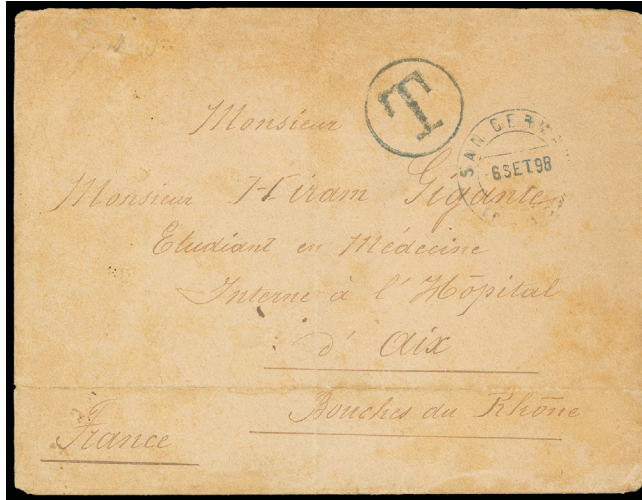 T
SAN GERM
6 SET. 98
Monsieur
Monsieur Hiram Gigante
Etudiant en Médecine
Interne à l'Hôpital
d' Aix
Bouches du Rhône
France